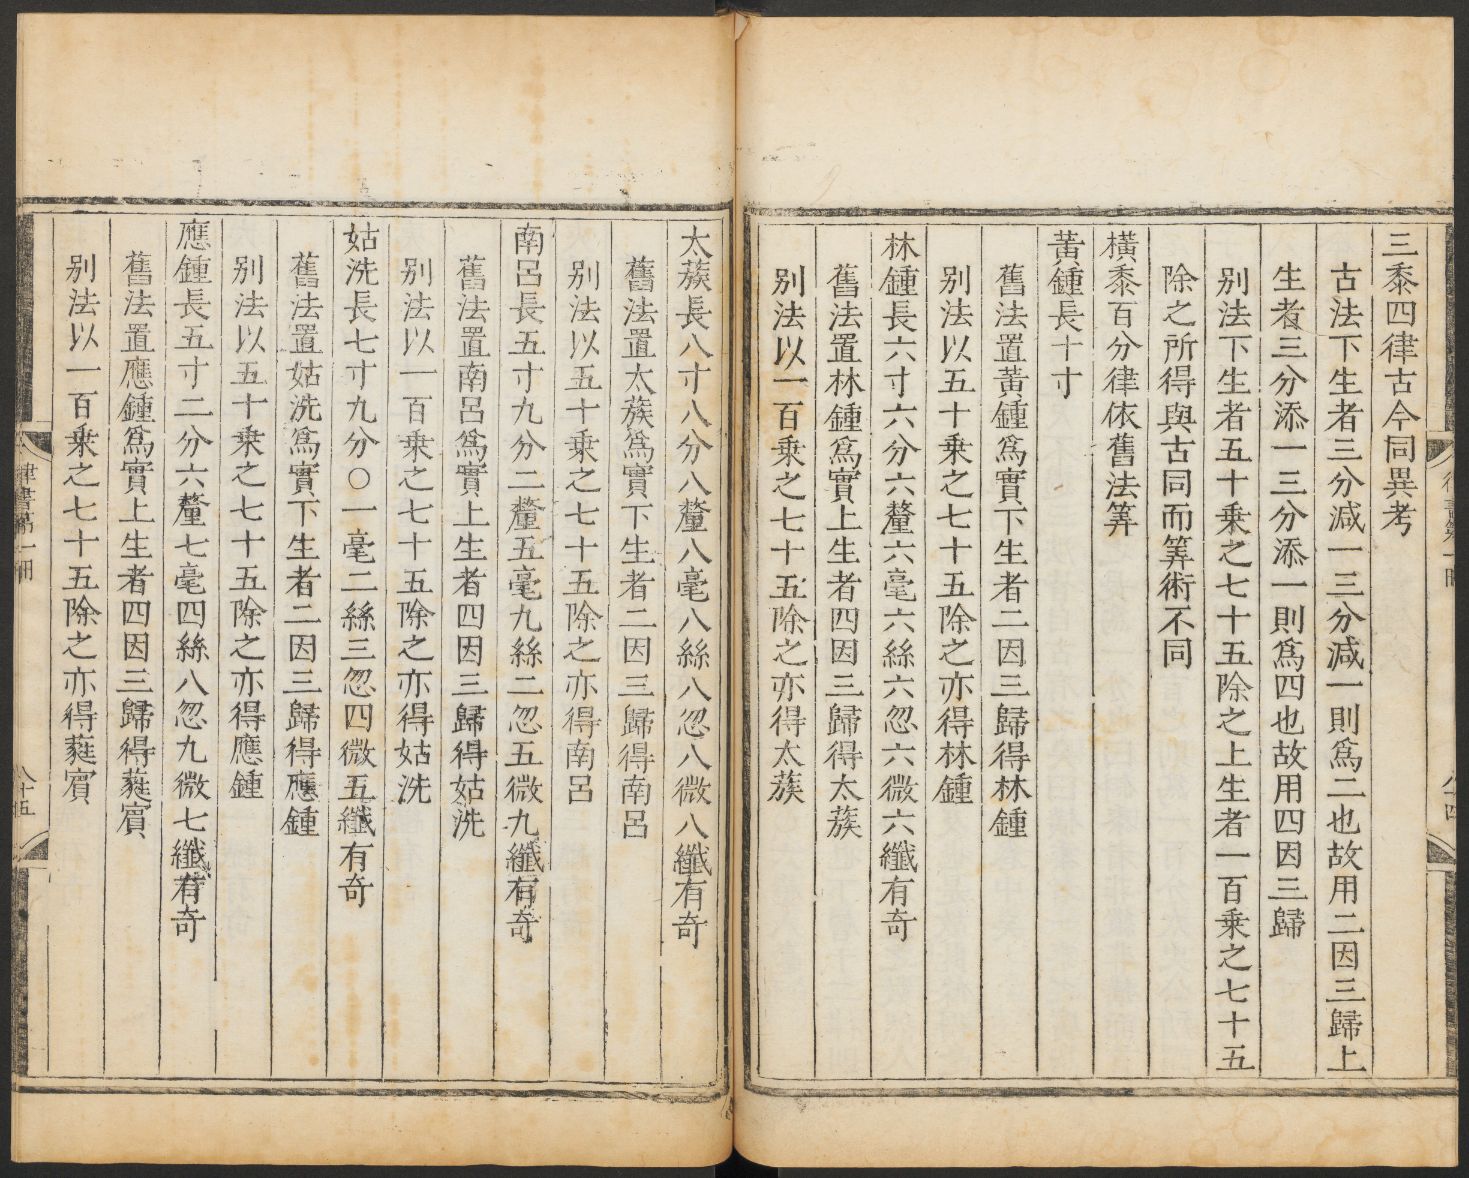 三黍四律古今同異考
古法下生者三分減一三分減一則爲二也故用二因三歸上
生者三分添一三分添一則爲四也故用四因三歸
别法下生者五十乗之七十五除之上生者一百乗之七十五
除之所得與古同而筭術不同
橫黍百分律依舊法筭
黃鍾長十寸
舊法置黃鍾爲實下生者二因三歸得林鍾
别法以五十乗之七十五除之亦得林鍾
林鍾長六寸六分六釐六毫六絲六忽六微六纖有奇
舊法置林鍾爲實上生者四因三歸得太蔟
别法以一百乗之七十五除之亦得太蔟
太蔟長八寸八分八釐八毫八絲八忽八微八纖有奇
舊法置太蔟爲實下生者二因三歸得南呂
别法以五十乗之七十五除之亦得南呂
南呂長五寸九分二釐五毫九絲二忽五微九纖有奇
舊法置南呂爲實上生者四因三歸得姑洗
别法以一百乗之七十五除之亦得姑洗
姑洗長七寸九分〇一毫二絲三忽四微五纖有奇
舊法置姑洗爲實下生者二因三歸得應鍾
别法以五十乗之七十五除之亦得應鍾
應鍾長五寸二分六釐七毫四絲八忽九微七纖有奇
舊法置應鍾爲實上生者四因三歸得蕤賓
别法以一百乗之七十五除之亦得蕤賓
律書第一冊
八十五